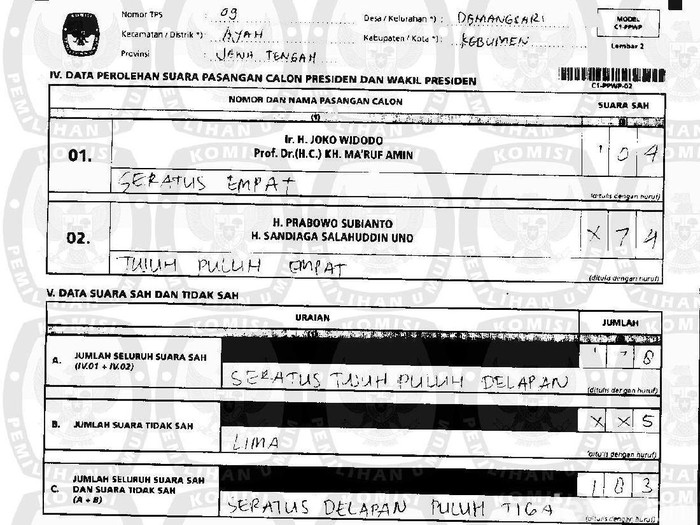 Nomor TPS : 09
Desa / Kelurahan *) : DEMANGSARI
MODEL
C1-PPWP
Kecamatan / Distrik *) : AYAH
Kabupaten / Kota *) : KEBUMEN
Lembar 2
Provinsi : JAWA TENGAH
IV. DATA PEROLEHAN SUARA PASANGAN CALON PRESIDEN DAN WAKIL PRESIDEN
C1-PPWP-02
NOMOR DAN NAMA PASANGAN CALON
SUARA SAH
(1)
01.
Ir. H. JOKO WIDODO
Prof. Dr.(H.C.) KH. MA'RUF AMIN
1 0 4
SERATUS EMPAT
(ditulis dengan huruf)
02.
H. PRABOWO SUBIANTO
H. SANDIAGA SALAHUDDIN UNO
X 7 4
TUJUH PULUH EMPAT
(ditulis dengan huruf)
V. DATA SUARA SAH DAN TIDAK SAH
URAIAN
JUMLAH
A. JUMLAH SELURUH SUARA SAH
(IV.01 + IV.02)
1 7 8
SERATUS TUJUH PULUH DELAPAN
(ditulis dengan huruf)
B. JUMLAH SUARA TIDAK SAH
X X 5
LIMA
(ditulis dengan huruf)
C. JUMLAH SELURUH SUARA SAH
DAN SUARA TIDAK SAH
(A + B)
1 8 3
SERATUS DELAPAN PULUH TIGA
(ditulis dengan huruf)